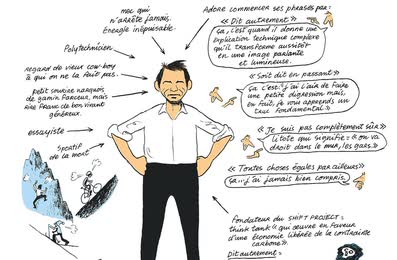 mec qui
n'arrête jamais.
Énergie inépuisable.
Polytechnicien
regard de vieux cow-boy
à qui on ne la fait pas.
petit sourire narquois
de gamin farceur, mais
aire franc de bon vivant
généreux.
essayiste
Sportif
de la mort
Adore commencer ses phrases par :
« Dit autrement »
ça, c'est quand il donne une
explication technique complexe
qu'il transforme aussitôt
en une image parlante
et lumineuse.
« Soit dit en passant »
ça c'est : "j'ai l'air de faire
une petite digression mais,
en fait, je vous apprends un
truc fondamental"
« Je suis pas complètement sûr »
litote qui signifie : « on va
droit dans le mur, les gars ».
« Toutes choses égales par ailleurs »
ça... j'ai jamais bien compris.
Fondateur du SHIFT PROJECT :
think tank "qui œuvre en faveur
d'une économie libérée de la contrainte
carbone".
Dit autrement :